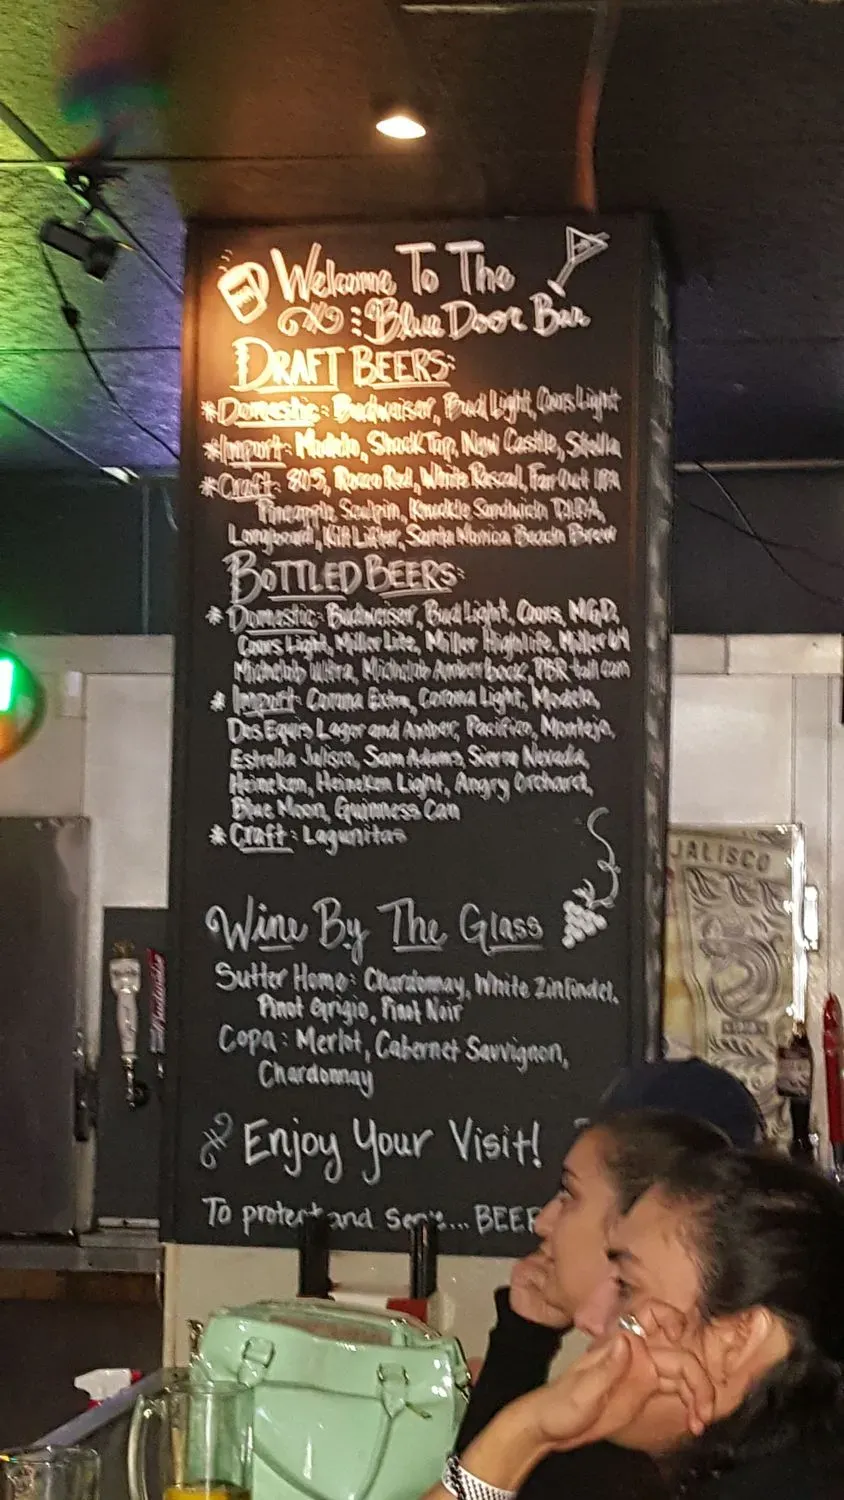 Welcome To The
Blue Door Bar
DRAFT BEERS:
*Domestic: Budweiser, Bud Light, Coors Light
*Import: Modelo, Shock Top, New Castle, Stella
*Craft: 805, Rocco Red, White Rascal, Far Out IPA
Pineapple Sculpin, Knuckle Sandwich
Longboard, Kilt Lifter, Santa Monica Beach Brew
BOTTLED BEERS:
* Domestic: Budweiser, Bud Light, Coors, MGD,
Coors Light, Miller Lite, Miller Highlife, Miller 64
Michelob Ultra, Michelob Amberbock, PBR-tall can
* Import: Corona Extra, Corona Light, Modelo,
Dos Equis Lager and Amber, Pacifico, Montejo,
Estrella Jalisco, Sam Adams, Sierra Nevada,
Heineken, Heineken Light, Angry Orchard,
Blue Moon, Guinness Can
* Craft: Lagunitas
Wine By The Glass
Sutter Home: Chardonnay, White Zinfindel,
Pinot Grigio, Pinot Noir
Copa: Merlot, Cabernet Sauvignon,
Chardonnay
Enjoy Your Visit!
To protect and serve... BEER
JALISCO
Budweiser